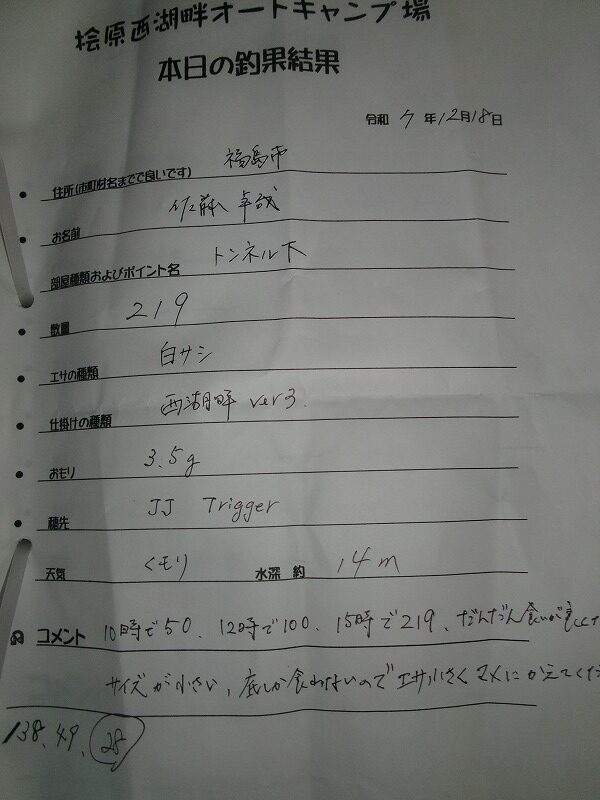 桧原西湖畔オートキャンプ場
本日の釣果結果
令和 7 年12月18日
住所(市町村名までで良いです) 福島市
お名前 佐藤 卓哉
部屋種類およびポイント名 トンネル下
数量 219
エサの種類 白サシ
仕掛けの種類 西湖畔 ver3.
おもり 3.5g
穂先 JJ Trigger
天気 くモリ 水深 約 14m
コメント 10時で50、12時で100、15時で219、だんだん食いが
サイズが小さい、底しか食わないのでエサ小さくマメにかえてくだ
138、49、28